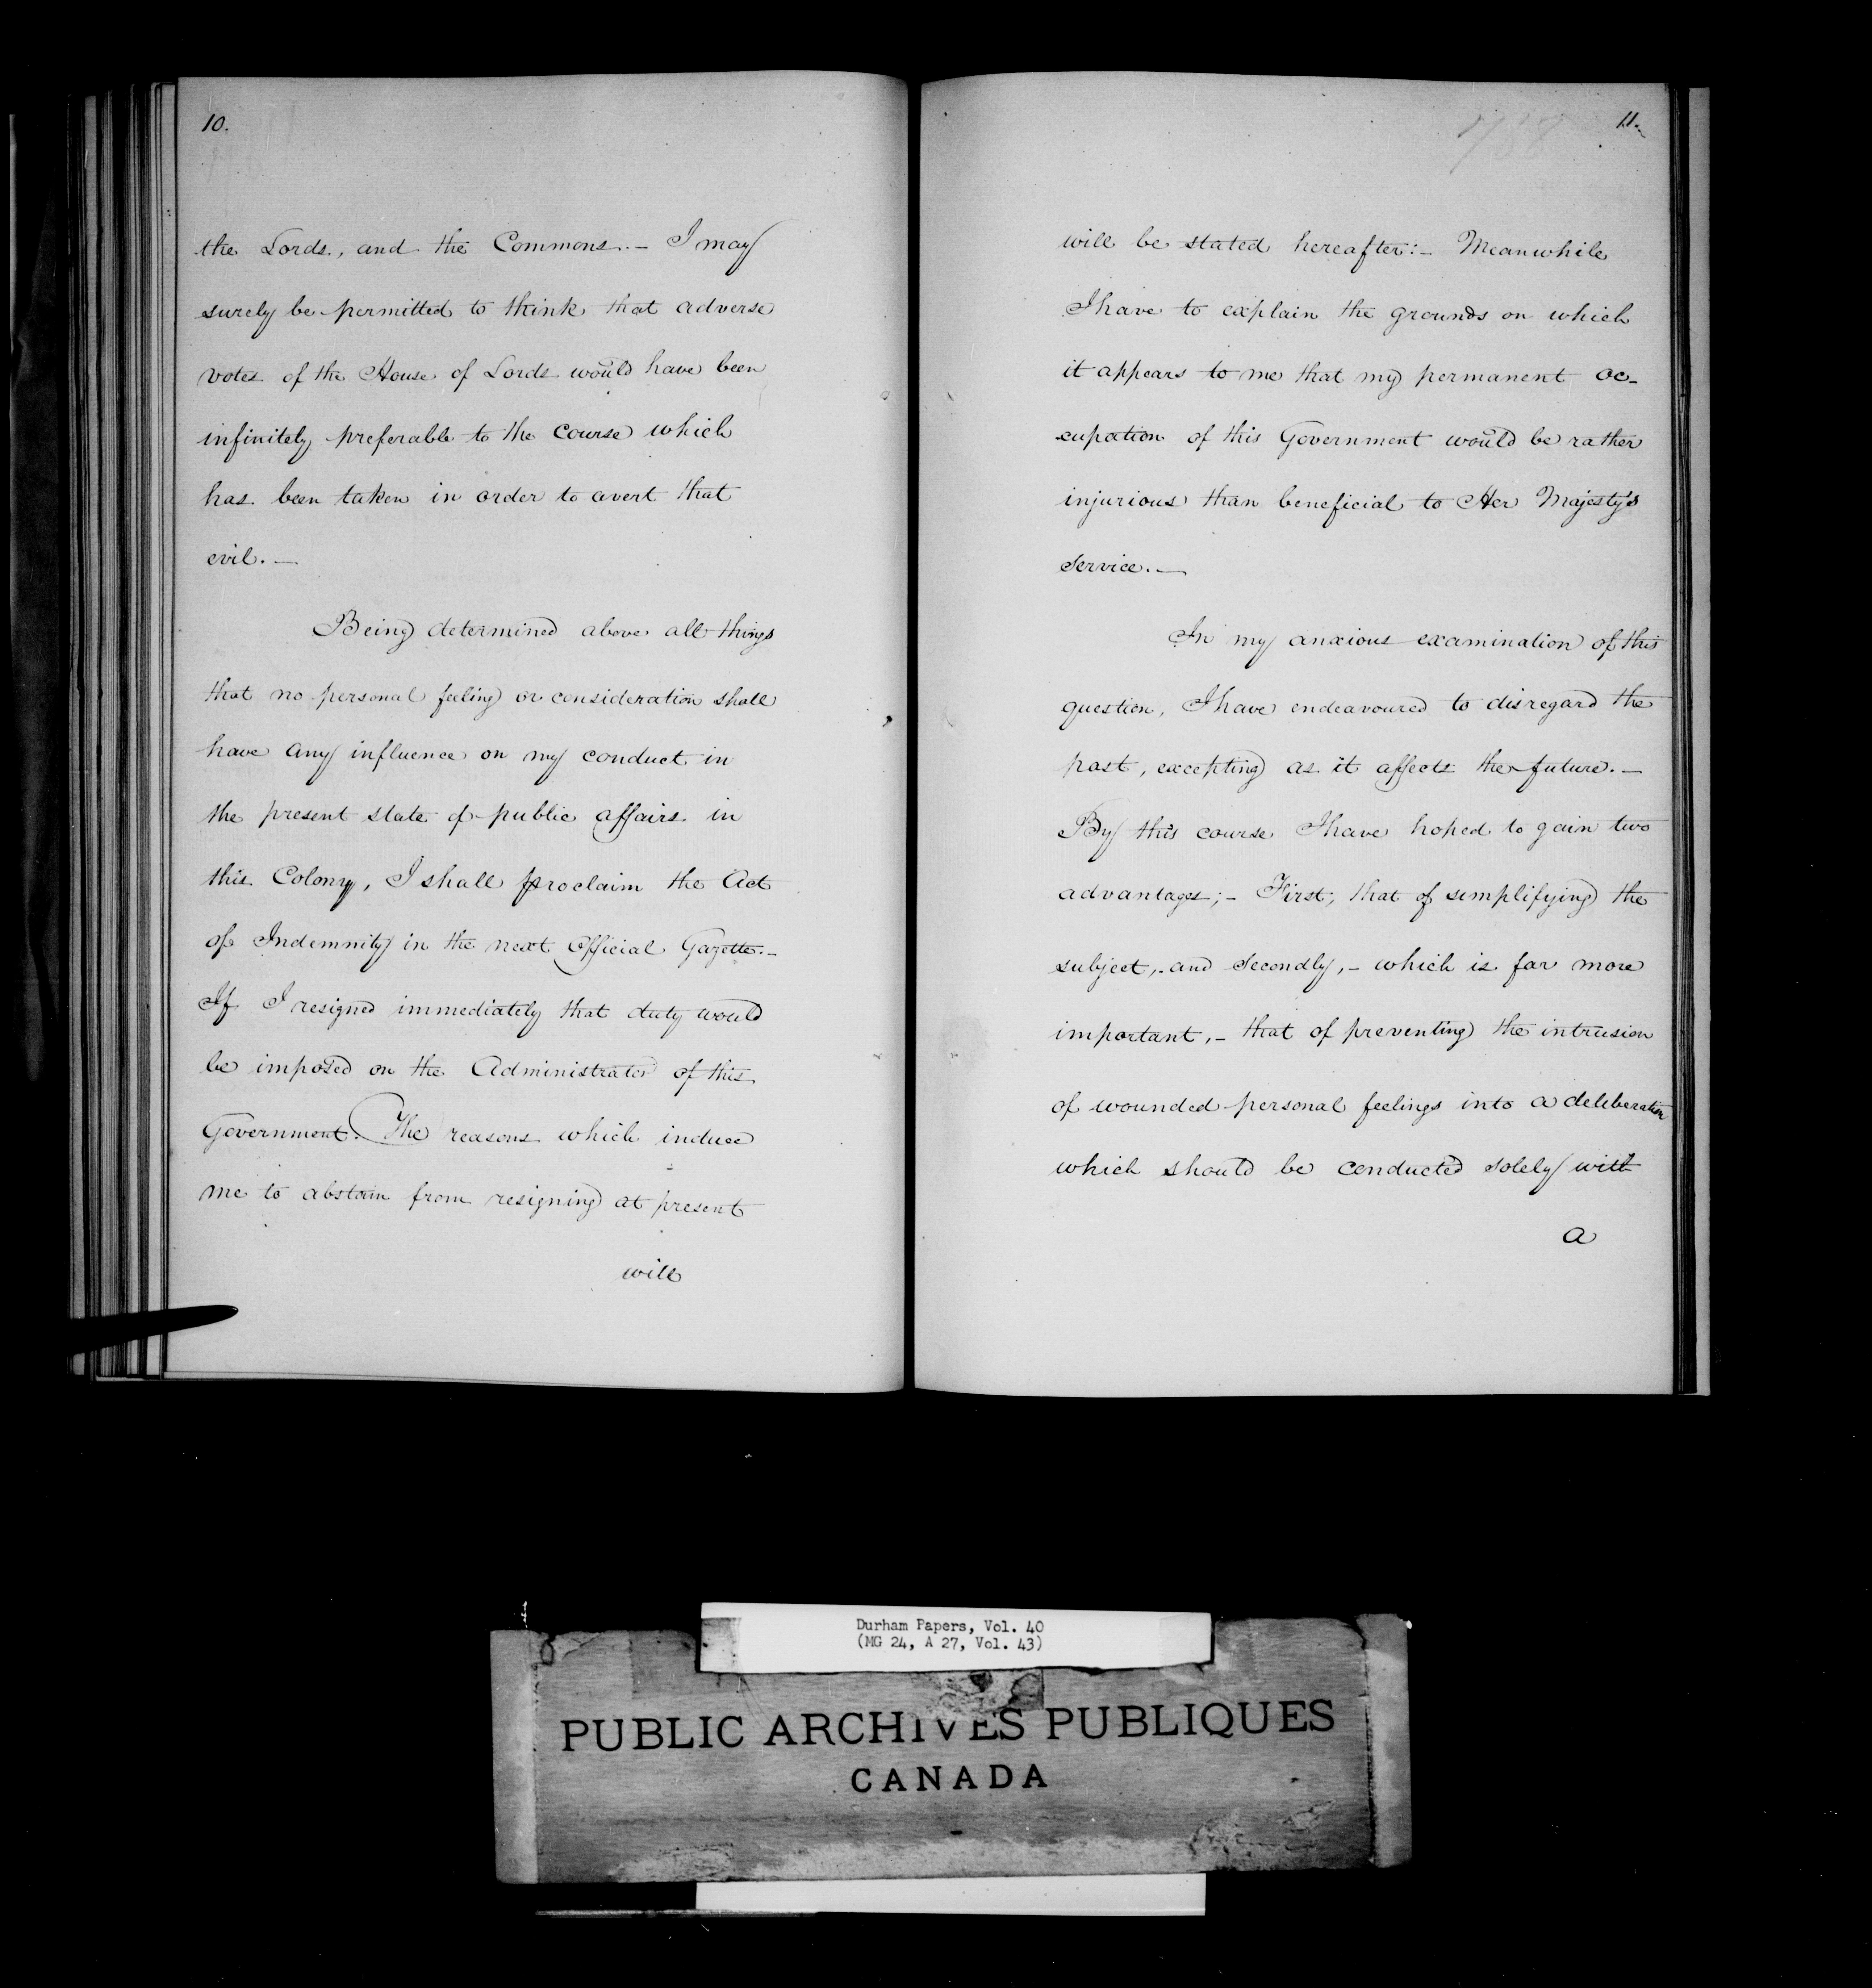 10.
the Lords, and the Commons.- I may
surely be permitted to think that adverse
votes of the House of Lords would have been
infinitely preferable to the course which
has been taken in order to avert that
evil.-
Being determined above all things
that no personal feeling or consideration shall
have any influence on my conduct in
the present state of public affairs in
this Colony, I shall proclaim the Act
of Indemnity in the next Official Gazette.-
If I resigned immediately that duty would
be imposed on the Administrator of this
Government. The reasons which induce
me to abstain from resigning at present
will
11.
will be stated hereafter:- Meanwhile
I have to explain the grounds on which
it appears to me that my permanent oc-
cupation of this Government would be rather
injurious than beneficial to Her Majesty's
Service.-
In my anxious examination of this
question, I have endeavoured to disregard the
past, excepting as it affects the future.-
By this course I have hoped to gain two
advantages;- First, that of simplifying the
subject,- and Secondly,- which is far more
important,- that of preventing the intrusion
of wounded personal feelings into a deliberation
which should be conducted solely with
a
Durham Papers, Vol. 40
(MG 24, A 27, Vol. 43)
PUBLIC ARCHIVES PUBLIQUES
CANADA